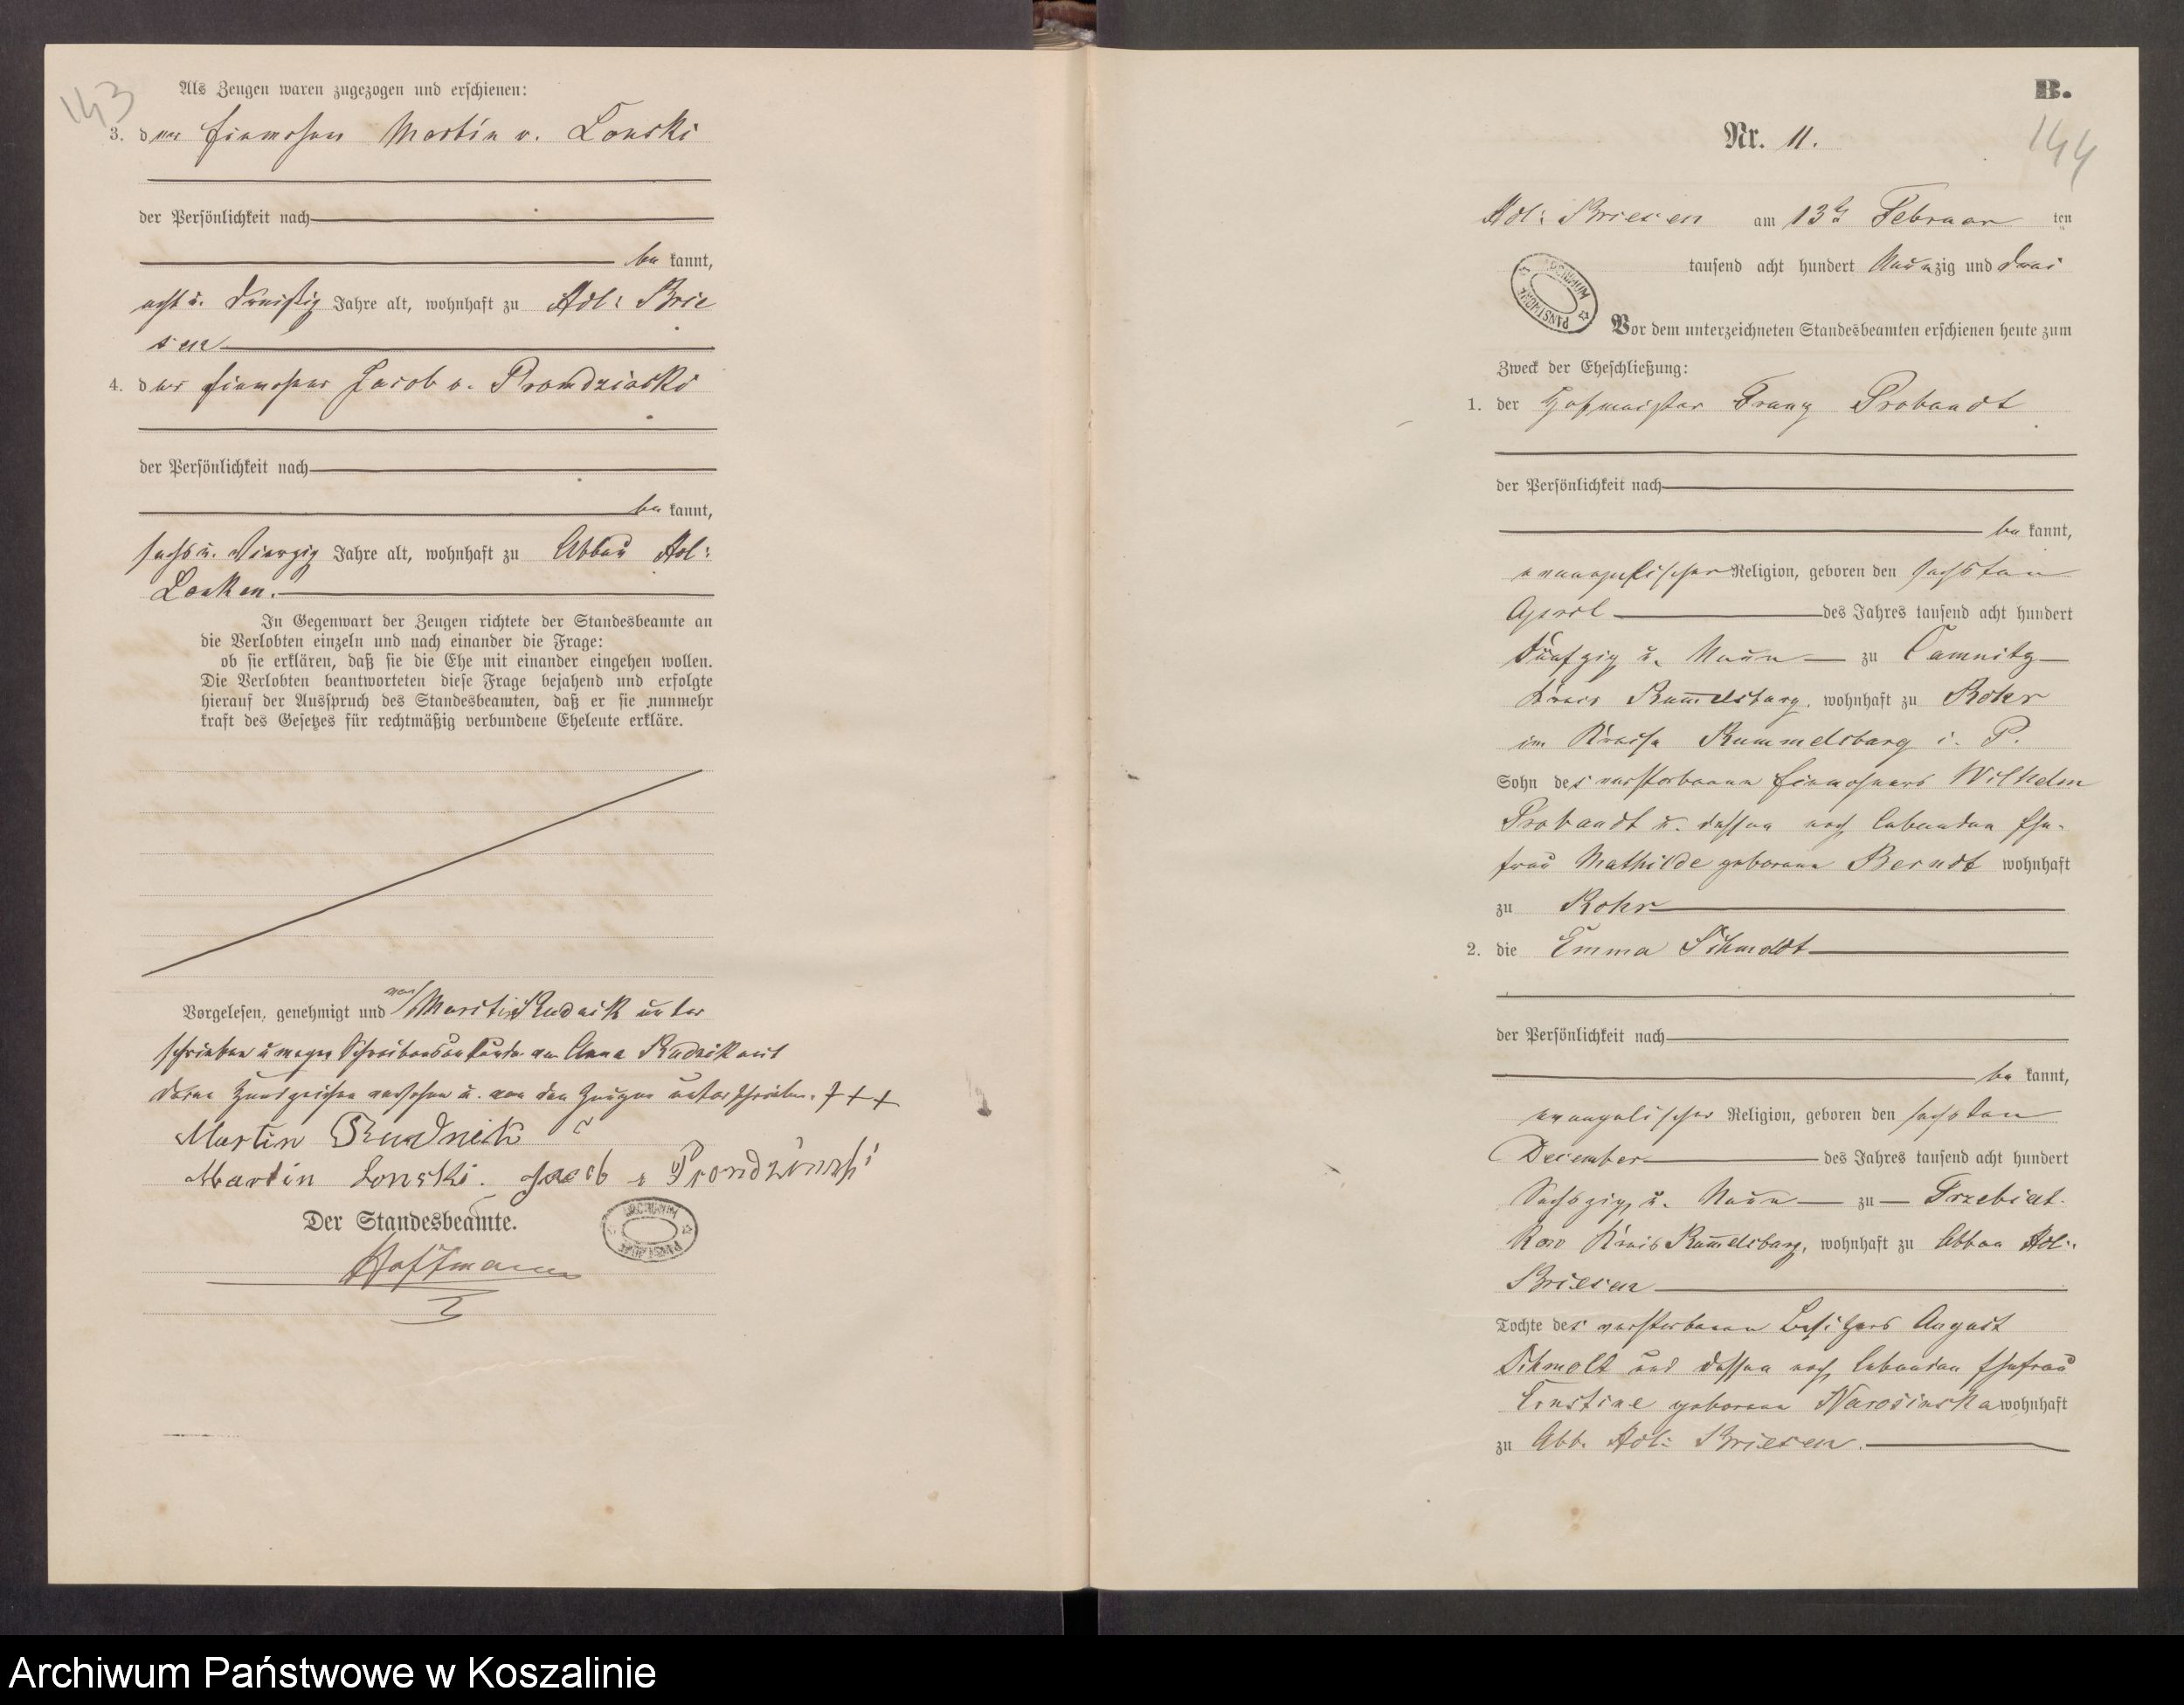 143
Als Zeugen waren zugezogen und erschienen:
3. der Einwohner Martin v. Lonski
der Persönlichkeit nach
be kannt,
acht u. dreißig Jahre alt, wohnhaft zu Adl: Brie
sen
4. der Einwohner Jacob v. Prondzinski
der Persönlichkeit nach
be kannt,
sechs u. vierzig Jahre alt, wohnhaft zu Abbau Adl:
Lonken.
In Gegenwart der Zeugen richtete der Standesbeamte an
die Verlobten einzeln und nach einander die Frage:
ob sie erklären, daß sie die Ehe mit einander eingehen wollen.
Die Verlobten beantworteten diese Frage bejahend und erfolgte
hierauf der Ausspruch des Standesbeamten, daß er sie nunmehr
kraft des Gesetzes für rechtmäßig verbundene Eheleute erkläre.
Vorgelesen, genehmigt und von Martin Rudnik unter
schrieben u wegen Schreibensunkunde von Anna Rudnik mit
deren Handzeichen versehen u. von den Zeugen unterschrieben. +++
Martin Rudnik
Martin Lonski. Jacob v Prondzinski
Der Standesbeamte.
Hoffmann
B.
144
Nr. 11.
Adl: Briesen am 13ten Februar ten
tausend acht hundert Neunzig und drei
Vor dem unterzeichneten Standesbeamten erschienen heute zum
Zweck der Eheschließung:
1. der Hofmeister Franz Probandt
der Persönlichkeit nach
be kannt,
evangelischer Religion, geboren den sechsten
April des Jahres tausend acht hundert
Fünfzig u. Neun zu Camnitz
Kreis Rummelsburg, wohnhaft zu Rohr
im Kreise Rummelsburg i. P.
Sohn des verstorbenen Einwohners Wilhelm
Probandt u. dessen noch lebenden Ehe-
frau Mathilde geborene Berndt wohnhaft
zu Rohr
2. die Emma Schmoldt
der Persönlichkeit nach
be kannt,
evangelischer Religion, geboren den sechsten
December des Jahres tausend acht hundert
Sechszig u. Neun zu Trzebiat-
kow Kreis Rummelsburg, wohnhaft zu Abbau Adl:
Briesen
Tochte des verstorbenen Besitzers August
Schmolt und dessen noch lebenden Ehefrau
Ernstine geborene wohnhaft
zu Abb. Adl: Briesen.
Archiwum Państwowe w Koszalinie